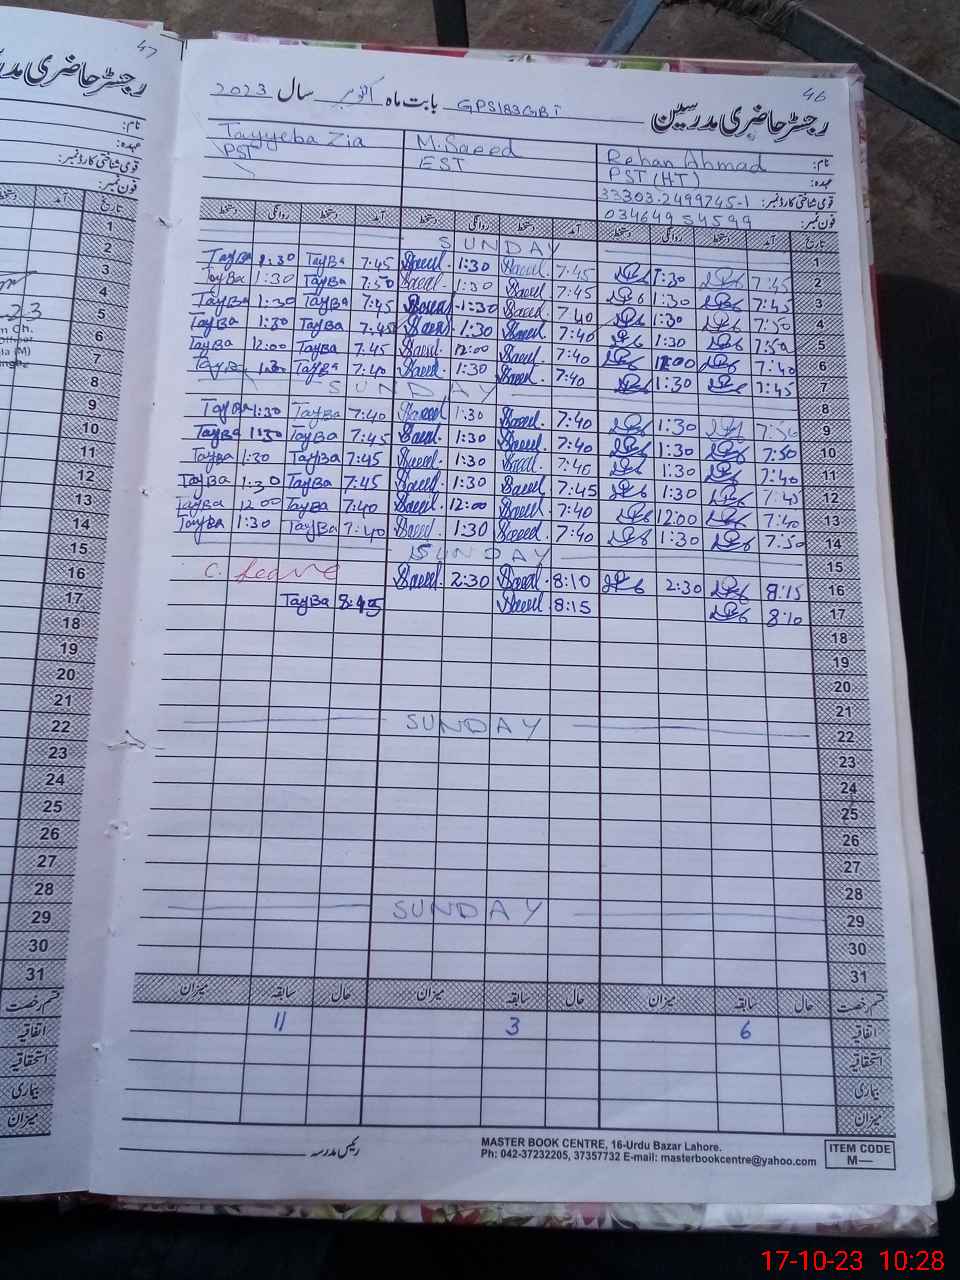 47
رجسٹر حاضری مدرسین 46
بابت ماہ اکتوبر سال 2023 GPS183GBT
نام: Rehan Ahmad M.Saeed Tayyeba Zia
عہدہ: PST(HT) EST PST
قومی شناختی کارڈ نمبر: 33303-2499745-1
فون نمبر: 03464954599
تاریخ آمد دستخط روانگی دستخط آمد دستخط روانگی دستخط آمد دستخط روانگی دستخط
1 SUNDAY
TayBa 1:30 TayBa 7:45 Saeed 1:30 Saeed 7:45 1:30 7:45 2
TayBa 1:30 TayBa 7:50 Saeed 1:30 Saeed 7:45 1:30 7:45 3
TayBa 1:30 TayBa 7:45 Saeed 1:30 Saeed 7:40 1:30 7:50 4
TayBa 1:30 TayBa 7:45 Saeed 1:30 Saeed 7:40 1:30 7:50 5
TayBa 12:00 TayBa 7:45 Saeed 12:00 Saeed 7:40 12:00 7:40 6
TayBa 1:30 TayBa 7:40 Saeed 1:30 Saeed 7:40 1:30 7:45 7
SUNDAY 8
TayBa 1:30 TayBa 7:40 Saeed 1:30 Saeed 7:40 1:30 9
TayBa 1:30 TayBa 7:45 Saeed 1:30 Saeed 7:40 1:30 7:50 10
TayBa 1:30 TayBa 7:45 Saeed 1:30 Saeed 7:45 1:30 7:40 11
TayBa 1:30 TayBa 7:45 Saeed 1:30 Saeed 7:45 1:30 7:45 12
TayBa 12:00 TayBa 7:40 Saeed 12:00 Saeed 7:40 12:00 7:40 13
TayBa 1:30 TayBa 7:40 Saeed 1:30 Saeed 7:40 1:30 7:50 14
SUNDAY 15
C. Leave Saeed 2:30 Saeed 8:10 2:30 8:15 16
TayBa 8:45 Saeed 8:15 8:10 17
18
19
20
21
SUNDAY 22
23
24
25
26
27
28
SUNDAY 29
30
31
قسم رخصت حال سابقہ میزان حال سابقہ میزان حال سابقہ میزان
اتفاقیہ 6 3 11
استحقاقیہ
بیماری
میزان
رئیس مدرسہ
MASTER BOOK CENTRE, 16-Urdu Bazar Lahore.
Ph: 042-37232205, 37357732 E-mail: masterbookcentre@yahoo.com
ITEM CODE
M—
17-10-23 10:28